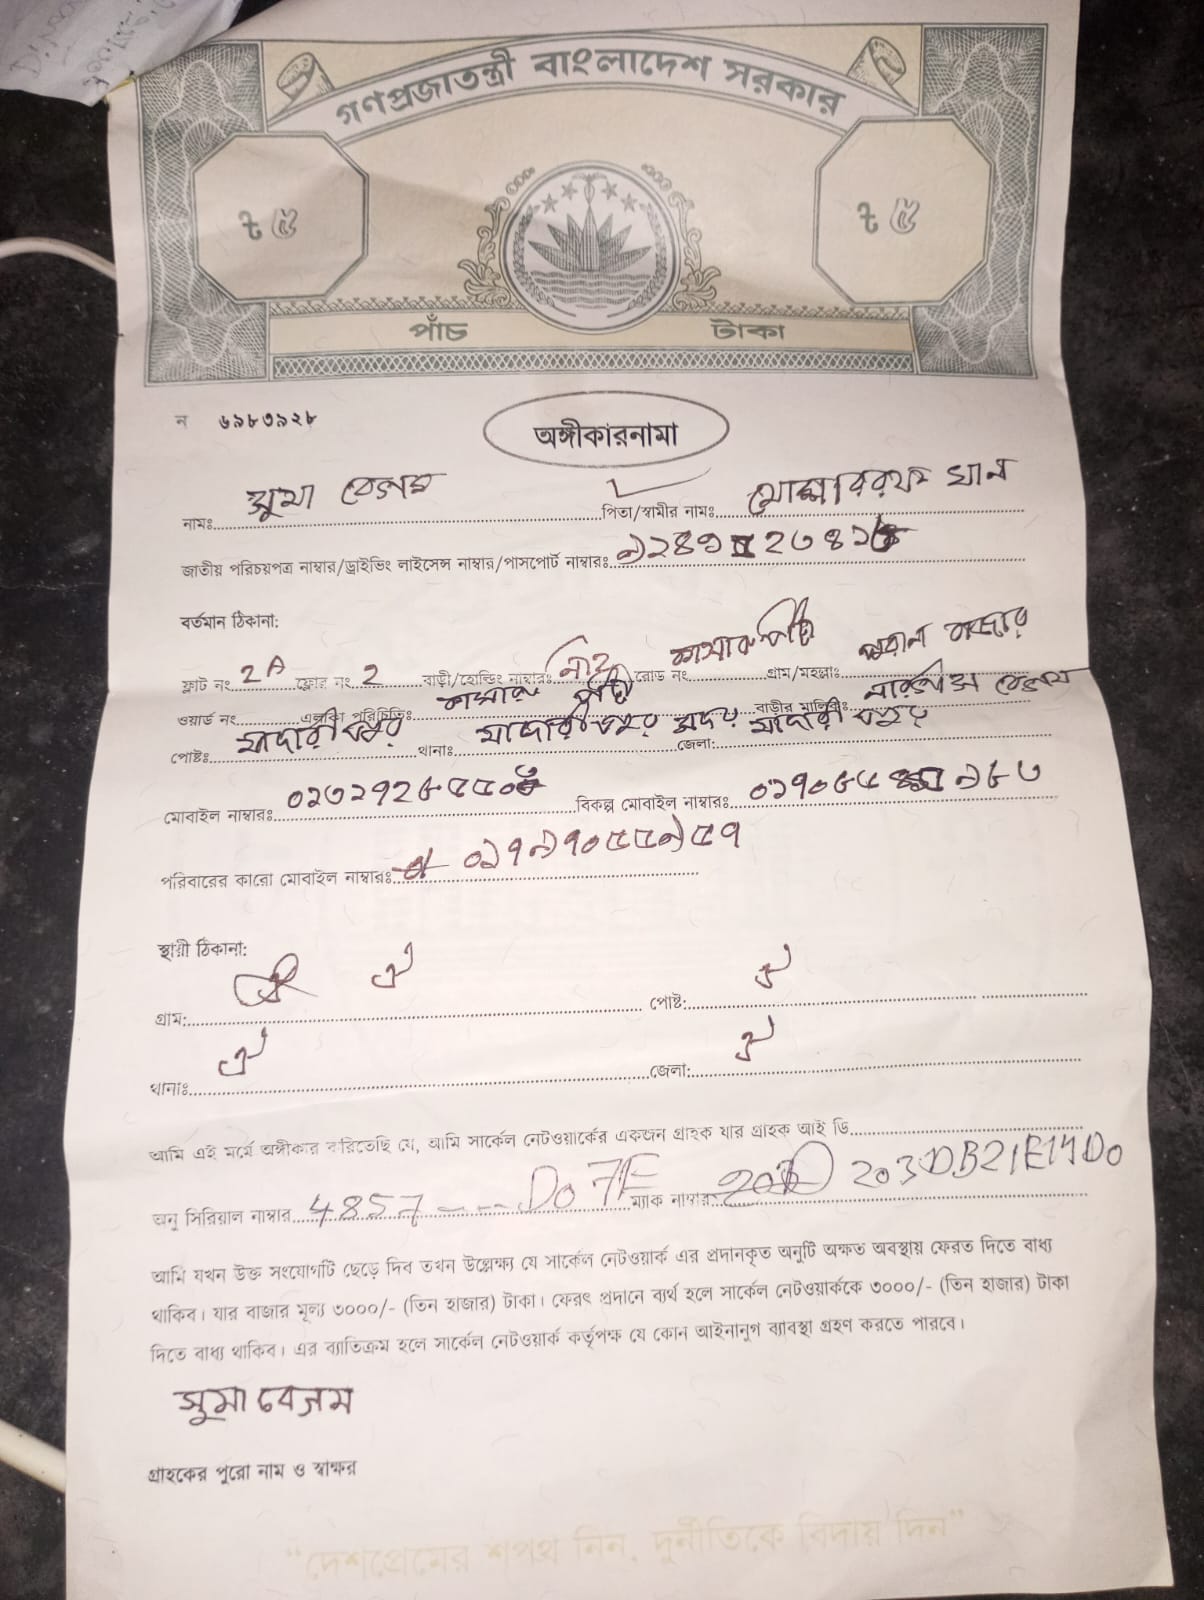 গণপ্রজাতন্ত্রী বাংলাদেশ সরকার
৳ ৫ ৳ ৫
পাঁচ টাকা
ন ৬৯৮৩৯২৮
অঙ্গীকারনামা
নামঃ সুমা বেগম পিতা/স্বামীর নামঃ খান
জাতীয় পরিচয়পত্র নাম্বার/ড্রাইভিং লাইসেন্স নাম্বার/পাসপোর্ট নাম্বারঃ
বর্তমান ঠিকানা:
ফ্লাট নং 2A ফ্লোর নং 2 বাড়ী/হোল্ডিং নাম্বারঃ রোড নং গ্রাম/মহল্লাঃ পুরান বাজার
ওয়ার্ড নং এলাকা পরিচিতিঃ বাড়ীর মালিকঃ বেগম
পোষ্টঃ মাদারীপুর থানাঃ মাদারীপুর সদর জেলা: মাদারীপুর
মোবাইল নাম্বারঃ বিকল্প মোবাইল নাম্বারঃ
পরিবারের কারো মোবাইল নাম্বারঃ ০১৭৯৭০৫৫৯৫৭
স্থায়ী ঠিকানা:
গ্রাম: ঐ পোষ্ট: ঐ
থানাঃ ঐ জেলা: ঐ
আমি এই মর্মে অঙ্গীকার করিতেছি যে, আমি সার্কেল নেটওয়ার্কের একজন গ্রাহক যার গ্রাহক আই ডি
অনু সিরিয়াল নাম্বার 4857 --- D07E ম্যাক নাম্বার 203DB21E14D0
আমি যখন উক্ত সংযোগটি ছেড়ে দিব তখন উল্লেক্ষ্য যে সার্কেল নেটওয়ার্ক এর প্রদানকৃত অনুটি অক্ষত অবস্থায় ফেরত দিতে বাধ্য
থাকিব। যার বাজার মূল্য ৩০০০/- (তিন হাজার) টাকা। ফেরৎ প্রদানে ব্যর্থ হলে সার্কেল নেটওয়ার্ককে ৩০০০/- (তিন হাজার) টাকা
দিতে বাধ্য থাকিব। এর ব্যতিক্রম হলে সার্কেল নেটওয়ার্ক কর্তৃপক্ষ যে কোন আইনানুগ ব্যাবস্থা গ্রহণ করতে পারবে।
সুমা বেগম
গ্রাহকের পুরো নাম ও স্বাক্ষর
"দেশপ্রেমের শপথ নিন, দুর্নীতিকে বিদায় দিন"